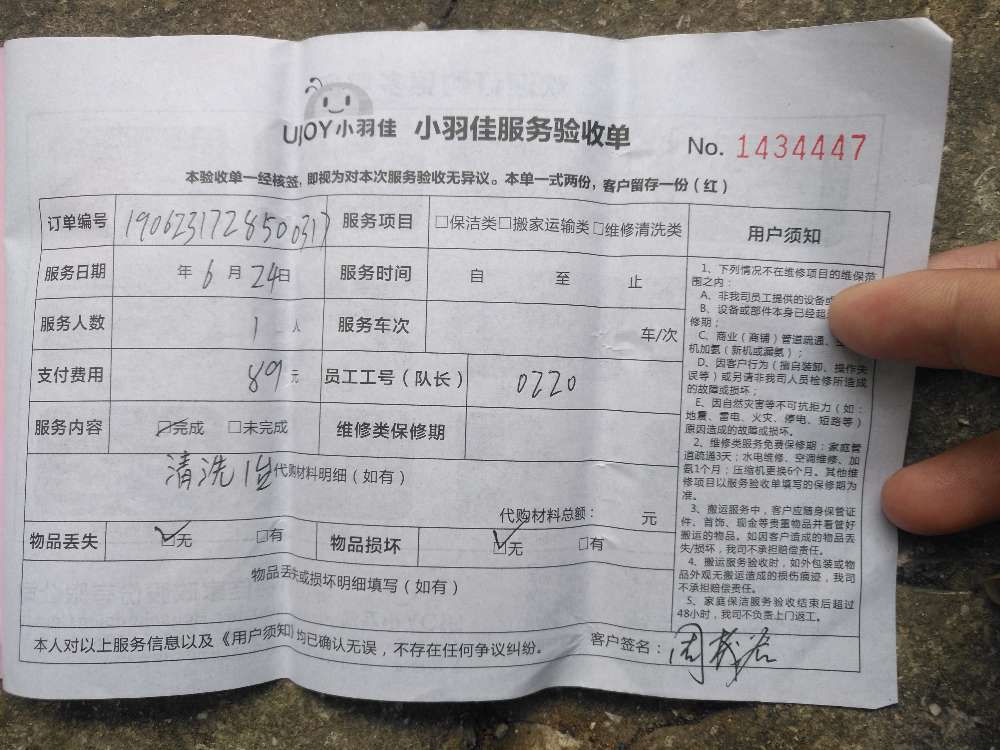 UJOY小羽佳 小羽佳服务验收单 No. 1434447
本验收单一经核签，即视为对本次服务验收无异议。本单一式两份，客户留存一份（红）
订单编号 190623172850031 服务项目 □保洁类□搬家运输类□维修清洗类
服务日期 年 6 月 24日 服务时间 自 至 止
服务人数 1 人 服务车次 车/次
支付费用 89 元 员工工号（队长） 0220
服务内容 ☑完成 □未完成 维修类保修期
清洗1 代购材料明细（如有）
代购材料总额： 元
物品丢失 ☑无 □有 物品损坏 ☑无 □有
物品丢失或损坏明细填写（如有）
本人对以上服务信息以及《用户须知》均已确认无误，不存在任何争议纠纷。 客户签名： 周
用户须知
1、下列情况不在维修项目的维保范
围之内：
A、非我司员工提供的设备或
B、设备或部件本身已经超
修期；
C、商业（商铺）管道疏通、
机加氨（新机或漏氨）；
D、因客户行为（擅自装卸、操作失
误等）或另请非我司人员检修所造成
的故障或损坏；
E、因自然灾害等不可抗拒力（如：
地震、雷电、火灾、停电、短路等）
原因造成的故障或损坏。
2、维修类服务免费保修期：家庭管
道疏通3天；水电维修、空调维修、加
氨1个月；压缩机更换6个月。其他维
修项目以服务验收单填写的保修期为
准。
3、搬运服务中，客户应随身保管证
件、首饰、现金等贵重物品并看管好
搬运的物品。如因客户造成的物品丢
失/损坏，我司不承担赔偿责任。
4、搬运服务验收时，如外包装或物
品外观无搬运造成的损伤痕迹，我司
不承担赔偿责任。
5、家庭保洁服务验收结束后超过
48小时，我司不负责上门返工。